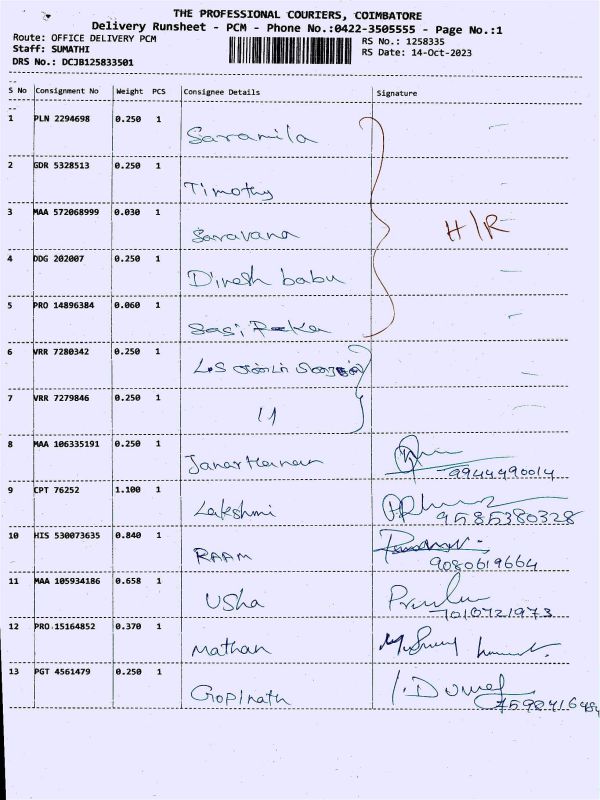 THE PROFESSIONAL COURIERS, COIMBATORE
Delivery Runsheet - PCM - Phone No.:0422-3505555 - Page No.:1
Route: OFFICE DELIVERY PCM
RS No.: 1258335
Staff: SUMATHI
RS Date: 14-Oct-2023
DRS No.: DCJB125833501
S No Consignment No Weight PCS Consignee Details Signature
1 PLN 2294698 0.250 1 Saramila
2 GDR 5328513 0.250 1 Timothy
3 MAA 572068999 0.030 1 Saravana
H/R
4 DDG 202007 0.250 1 Dinesh babu
5 PRO 14896384 0.060 1 Sasi Reka
6 VRR 7280342 0.250 1
7 VRR 7279846 0.250 1 11
8 MAA 106335191 0.250 1 Janarthanan
9944490014
9 CPT 76252 1.100 1 Lakshmi
9585380328
10 HIS 530073635 0.840 1 RAAM
9080619664
11 MAA 105934186 0.658 1 Usha
7010721973
12 PRO 15164852 0.370 1 Mathan
13 PGT 4561479 0.250 1 Gopinath